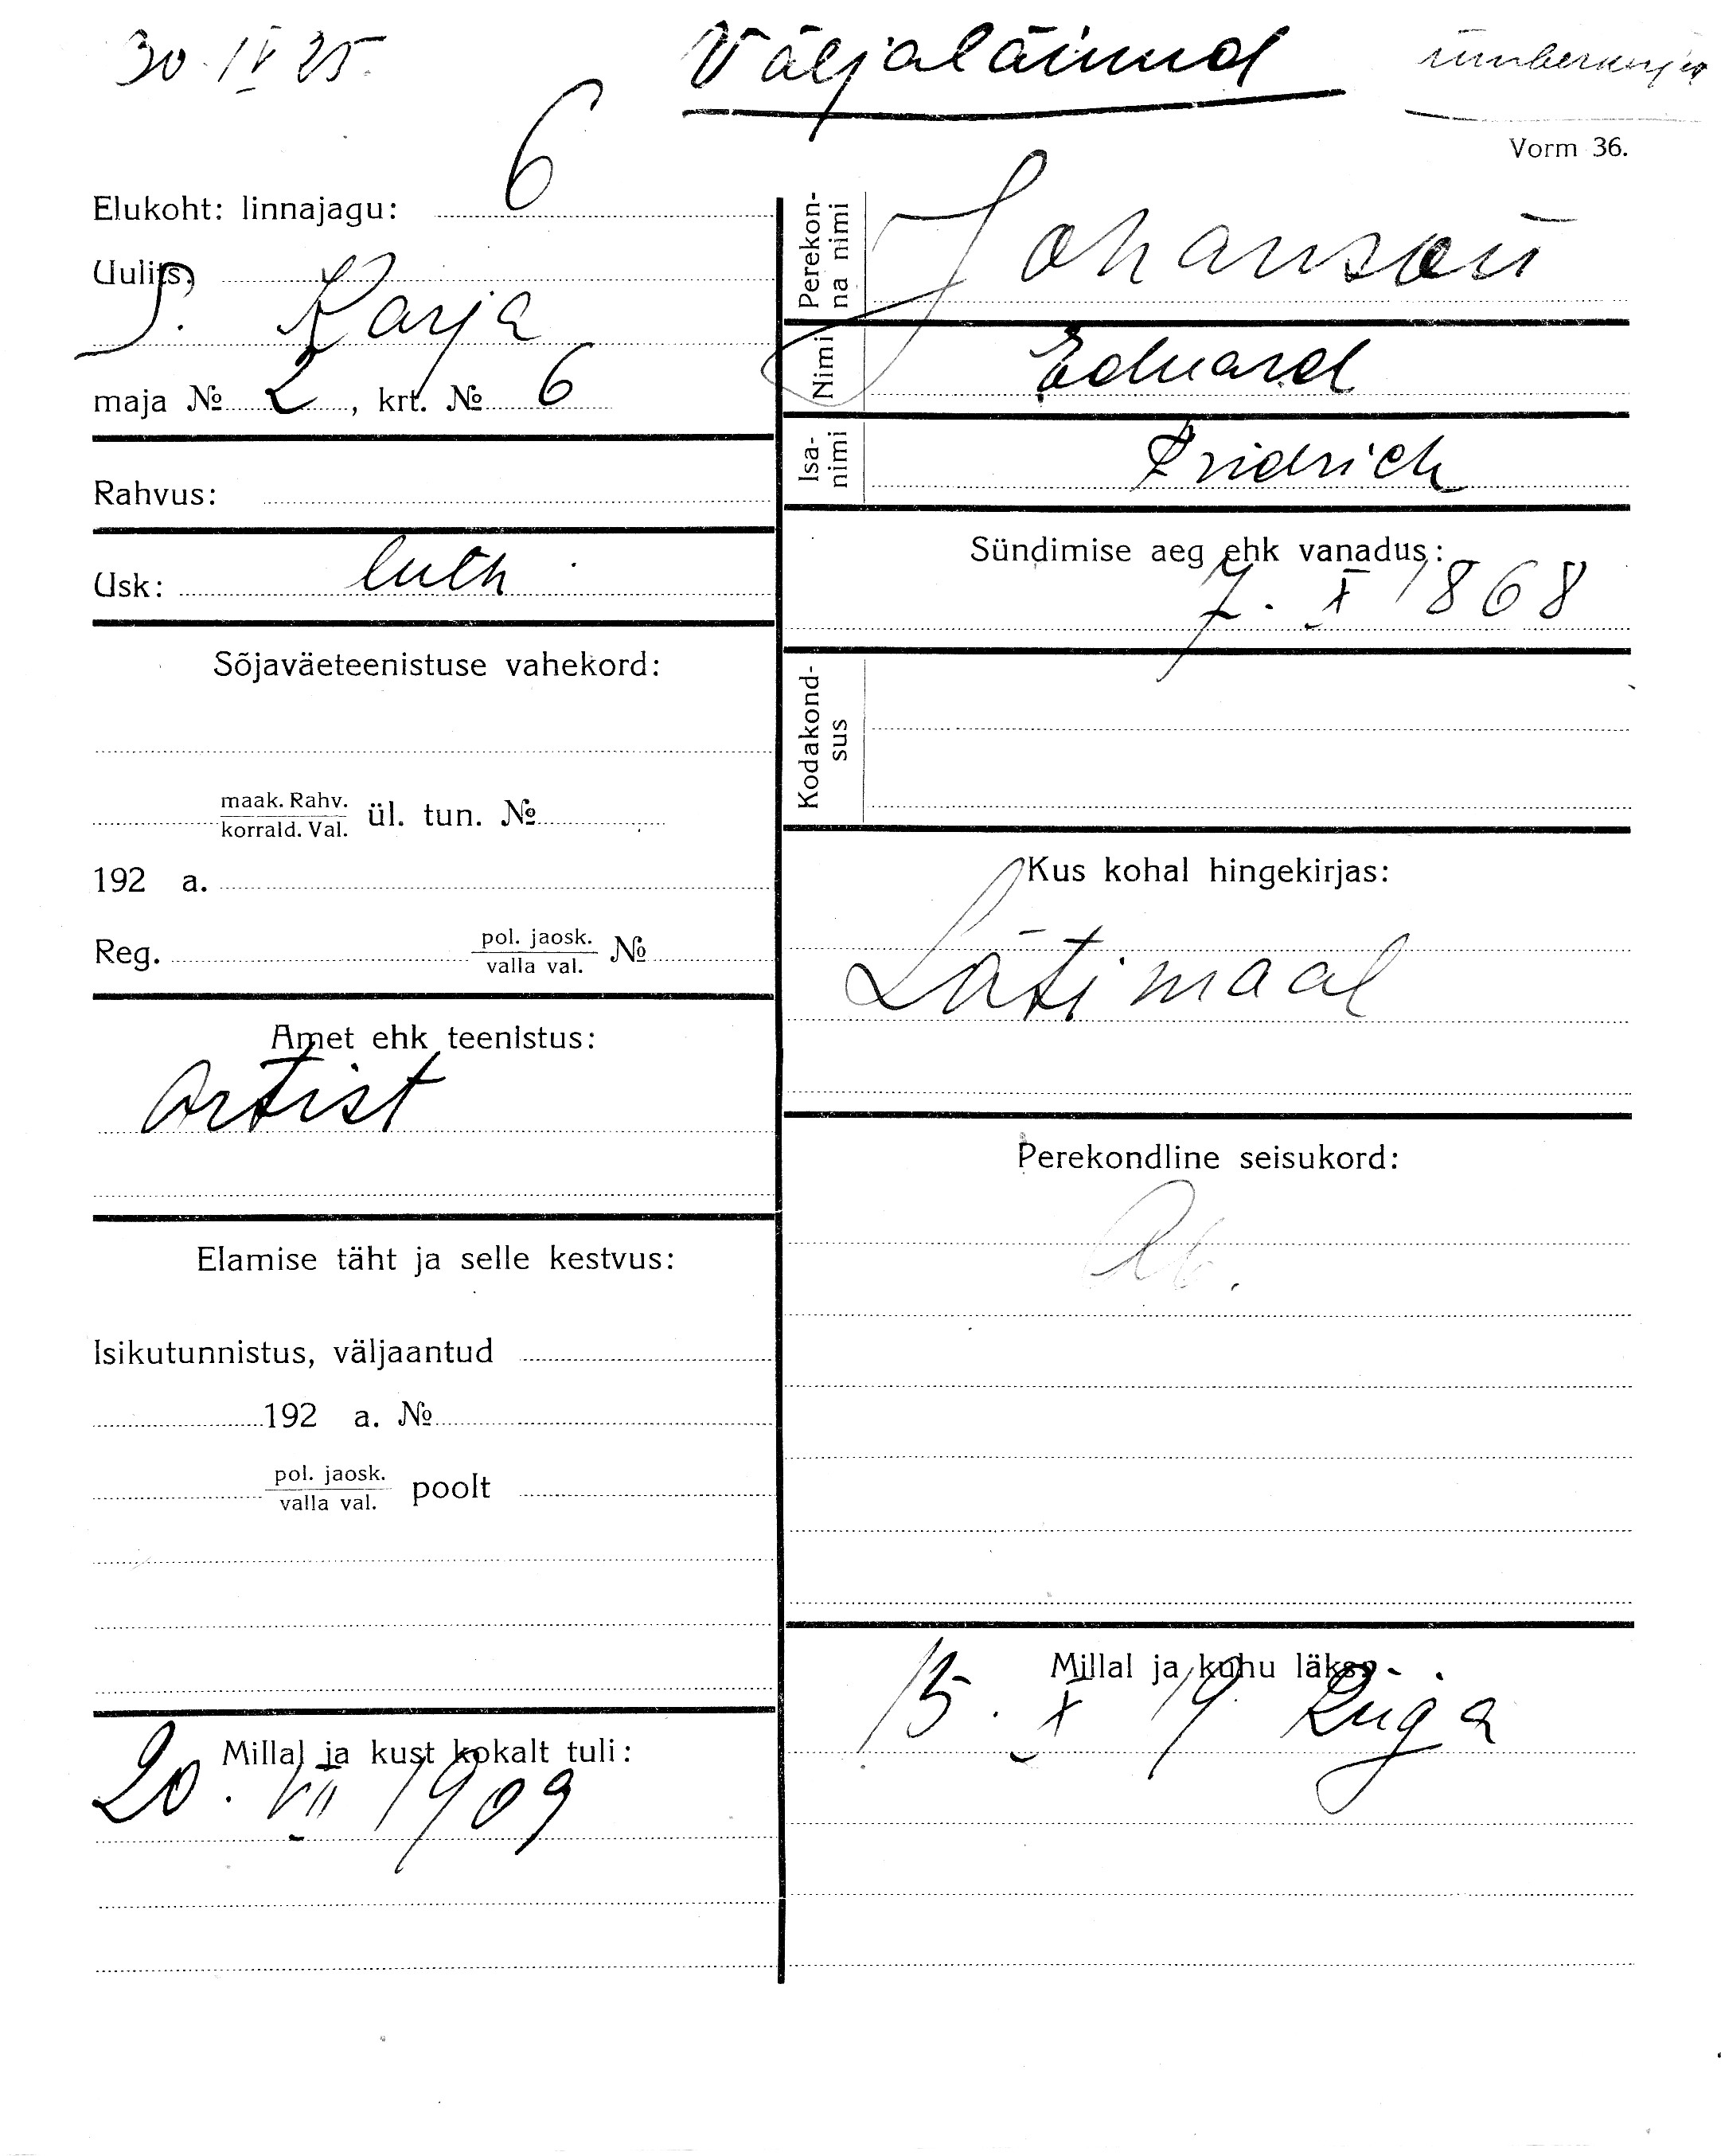 30. IV 25.
Väljaläinud
Vorm 36.
Elukoht: linnajagu: 6
Uulits,
S. Karja
maja № 2, krt. № 6
Rahvus:
Usk: luth.
Sõjaväeteenistuse vahekord:
maak. Rahv.
korrald. Val. ül. tun. №
192 a.
Reg. pol. jaosk.
valla val. №
Amet ehk teenistus:
Artist
Elamise täht ja selle kestvus:
Isikutunnistus, väljaantud
192 a. №
pol. jaosk.
valla val. poolt
Millal ja kust kokalt tuli:
20. VII 1909
Perekon-
na nimi Johanson
Nimi Eduard
Isa-
nimi Fridrich
Sündimise aeg ehk vanadus:
7. X 1868
Kodakond-
sus
Kus kohal hingekirjas:
Lätimaal
Perekondline seisukord:
Ab.
Millal ja kuhu läks:
15. X 19 Riiga